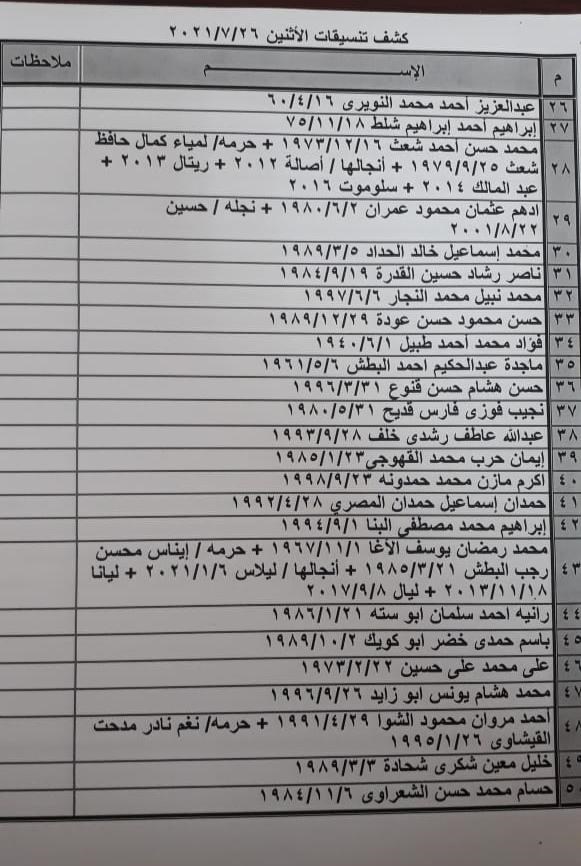 كشف تنسيقات الأثنين ٢٠٢١/٧/٢٦
م الإســـــــم ملاحظات
٢٦ عبدالعزيز أحمد محمد النويرى ٦٠/٤/١٦
٢٧ إبراهيم أحمد إبراهيم شلط ٧٥/١١/١٨
محمد حسن أحمد شعث ١٩٧٣/١٢/١٦ + حرمه/ لمياء كمال حافظ
٢٨ شعث ١٩٧٩/٩/٢٥ + أنجالها / أصالة ٢٠١٢ + ريتال ٢٠١٣ +
عبد المالك ٢٠١٤ + سلوموت ٢٠١٦
٢٩ ادهم عثمان محمود عمران ١٩٨٠/٦/٢ + نجله / حسين
٢٠٠١/٨/٢٢
٣٠ محمد إسماعيل خالد الحداد ١٩٨٩/٣/٥
٣١ ناصر رشاد حسين القدرة ١٩٨٤/٩/١٩
٣٢ محمد نبيل محمد النجار ١٩٩٧/٦/٦
٣٣ حسن محمود حسن عودة ١٩٨٩/١٢/٢٩
٣٤ فؤاد محمد أحمد طبيل ١٩٤٠/٦/١
٣٥ ماجدة عبدالحكيم احمد البطش ١٩٦١/٥/٦
٣٦ حسن هشام حسن قنوع ١٩٩٦/٣/٣١
٣٧ نجيب فوزى فارس قديح ١٩٨٠/٥/٣١
٣٨ عبدالله عاطف رشدى خلف ١٩٩٣/٩/٢٨
٣٩ إيمان حرب محمد القهوجى ١٩٨٥/١/٢٣
٤٠ اكرم مازن محمد حمدونه ١٩٩٨/٩/٢٣
٤١ حمدان إسماعيل حمدان المصري ١٩٩٢/٤/٢٨
٤٢ إبراهيم محمد مصطفى البنا ١٩٩٤/٩/١
محمد رمضان يوسف الأغا ١٩٦٧/١١/١ + حرمه / إيناس محسن
٤٣ رجب البطش ١٩٨٥/٣/٢١ + أنجالها / ليلاس ٢٠٢١/١/٦ + ليانا
٢٠١٣/١١/١٨ + ليال ٢٠١٧/٩/٨
٤٤ رانيه احمد سلمان ابو سته ١٩٨٦/١/٢١
٤٥ باسم حمدى خضر ابو كويك ١٩٨٩/١٠/٢
٤٦ على محمد على حسين ١٩٧٣/٢/٢٢
٤٧ محمد هشام يونس ابو زايد ١٩٩٦/٩/٢٦
٤٨ احمد مروان محمود الشوا ١٩٩١/٤/٢٩ + حرمه/ نغم نادر مدحت
القيشاوى ١٩٩٥/١/٢٦
٤٩ خليل معين شكرى شحادة ١٩٨٩/٣/٣
٥٠ حسام محمد حسن الشعراوى ١٩٨٤/١١/٦